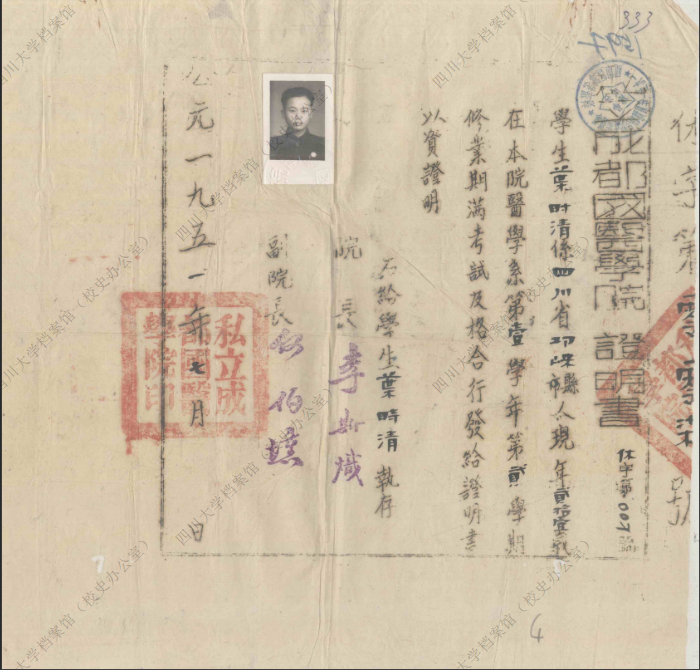 成都國醫學院 證明書
休字第007號
學生葉時清係四川省邛崍縣市人現年貳拾壹歲
在本院醫學系第壹學年第貳學期
修業期滿考試及格合行發給證明書
以資證明
右給學生葉時清執存
院長 李斯熾
副院長 松伯
公元一九五一年七月 日
私立成
都國醫
學院印
休字第
333
4
四川大学档案馆（校史办公室）